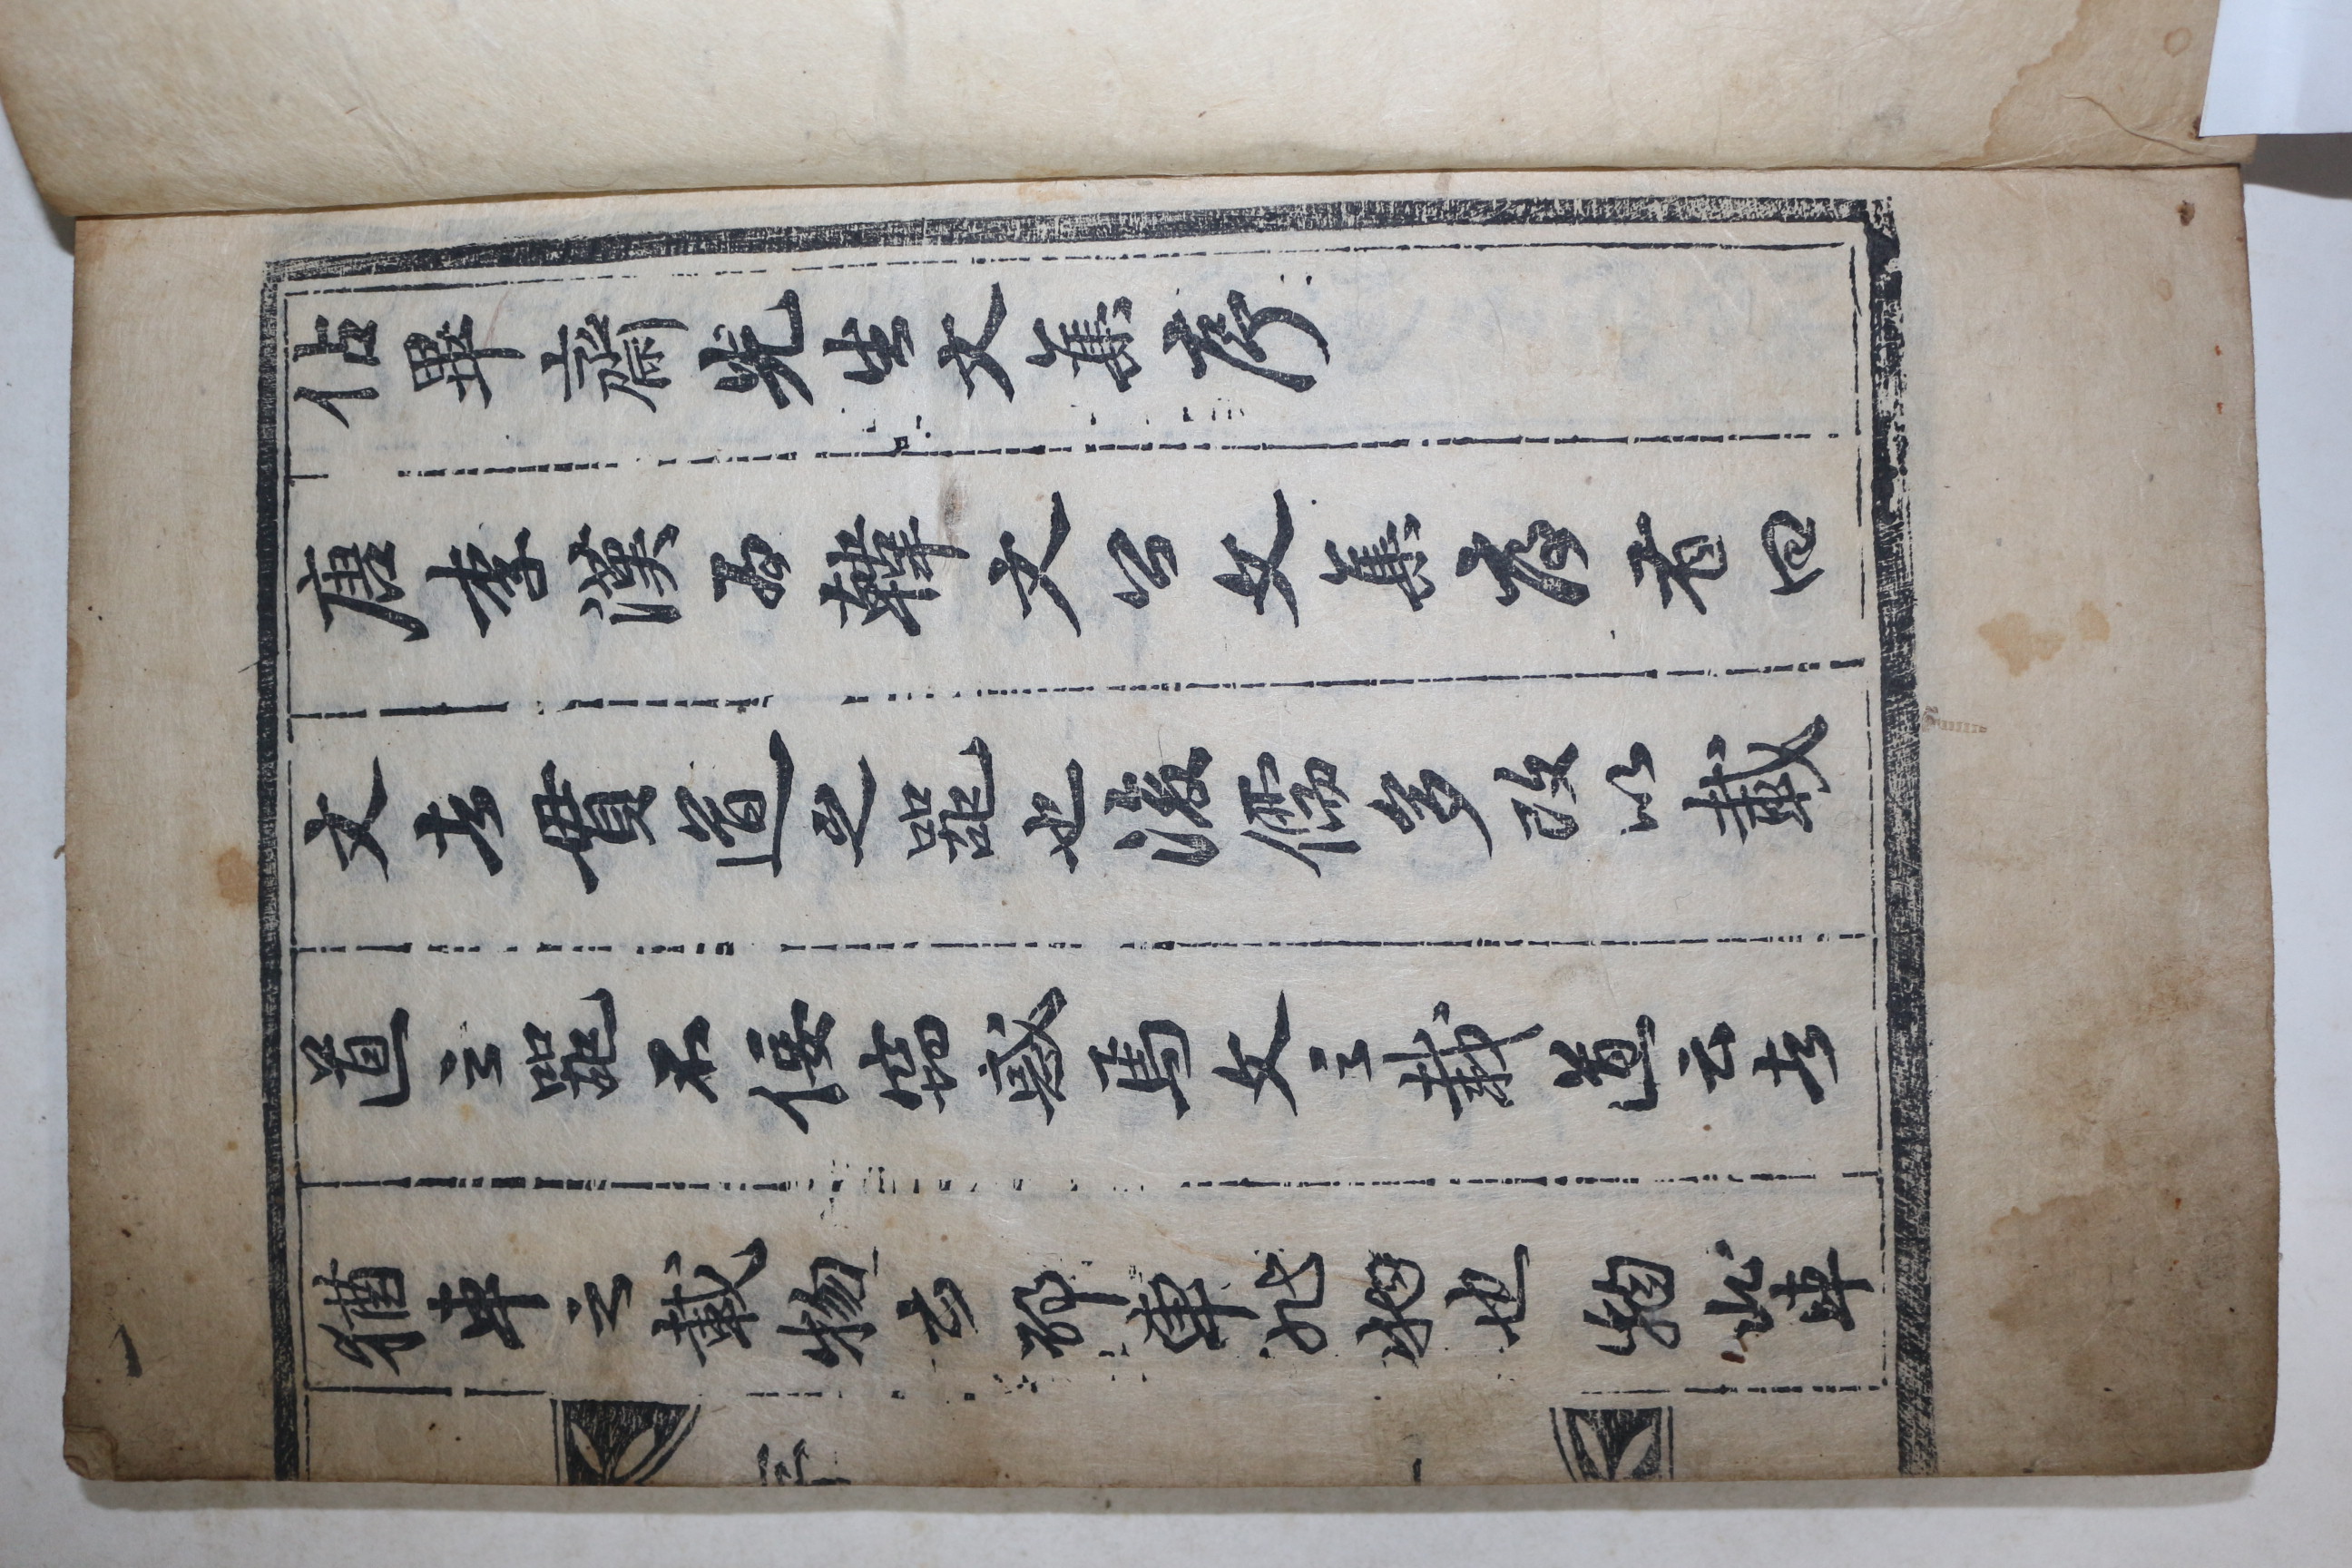 佔畢齋先生文集序
唐李漢爲韓文公文集序有曰
文者貫道之器也後儒多改以載
道之器不侫竊惑焉文之載道云者
猶車之載物云尔車非物也物必車